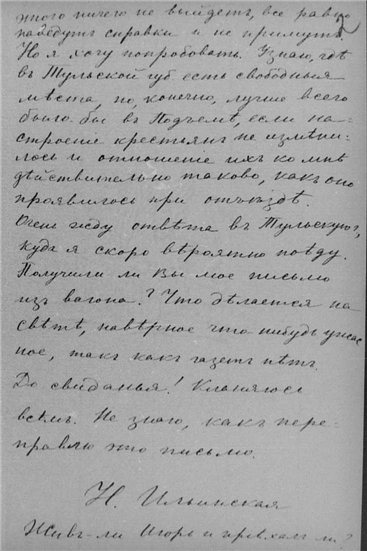 этого ничего не выйдетъ, все равно
наведутъ справки и не примутъ.
Но я хочу попробовать. Узнаю, гдѣ
въ Тульской губ. есть свободныя
мѣста, но, конечно, лучше всего
было бы въ Подъемѣ, если на-
строение крестьянъ не измѣни-
лось и отношение ихъ ко мнѣ
дѣйствительно таково, какъ оно
проявилось при отъѣздѣ.
Очень жду отвѣта въ Тульскую г,
куда я скоро вѣроятно поѣду.
Получили ли Вы мое письмо
изъ вагона? Что дѣлается на
свѣтѣ, навѣрное что нибудь ужас
ное, такъ какъ газетъ нѣтъ.
До свиданья! Кланяюсь
всѣмъ. Не знаю, какъ пере-
правлю это письмо.
Н. Ильинская
Живъ-ли Игорь и приѣхалъ ли?